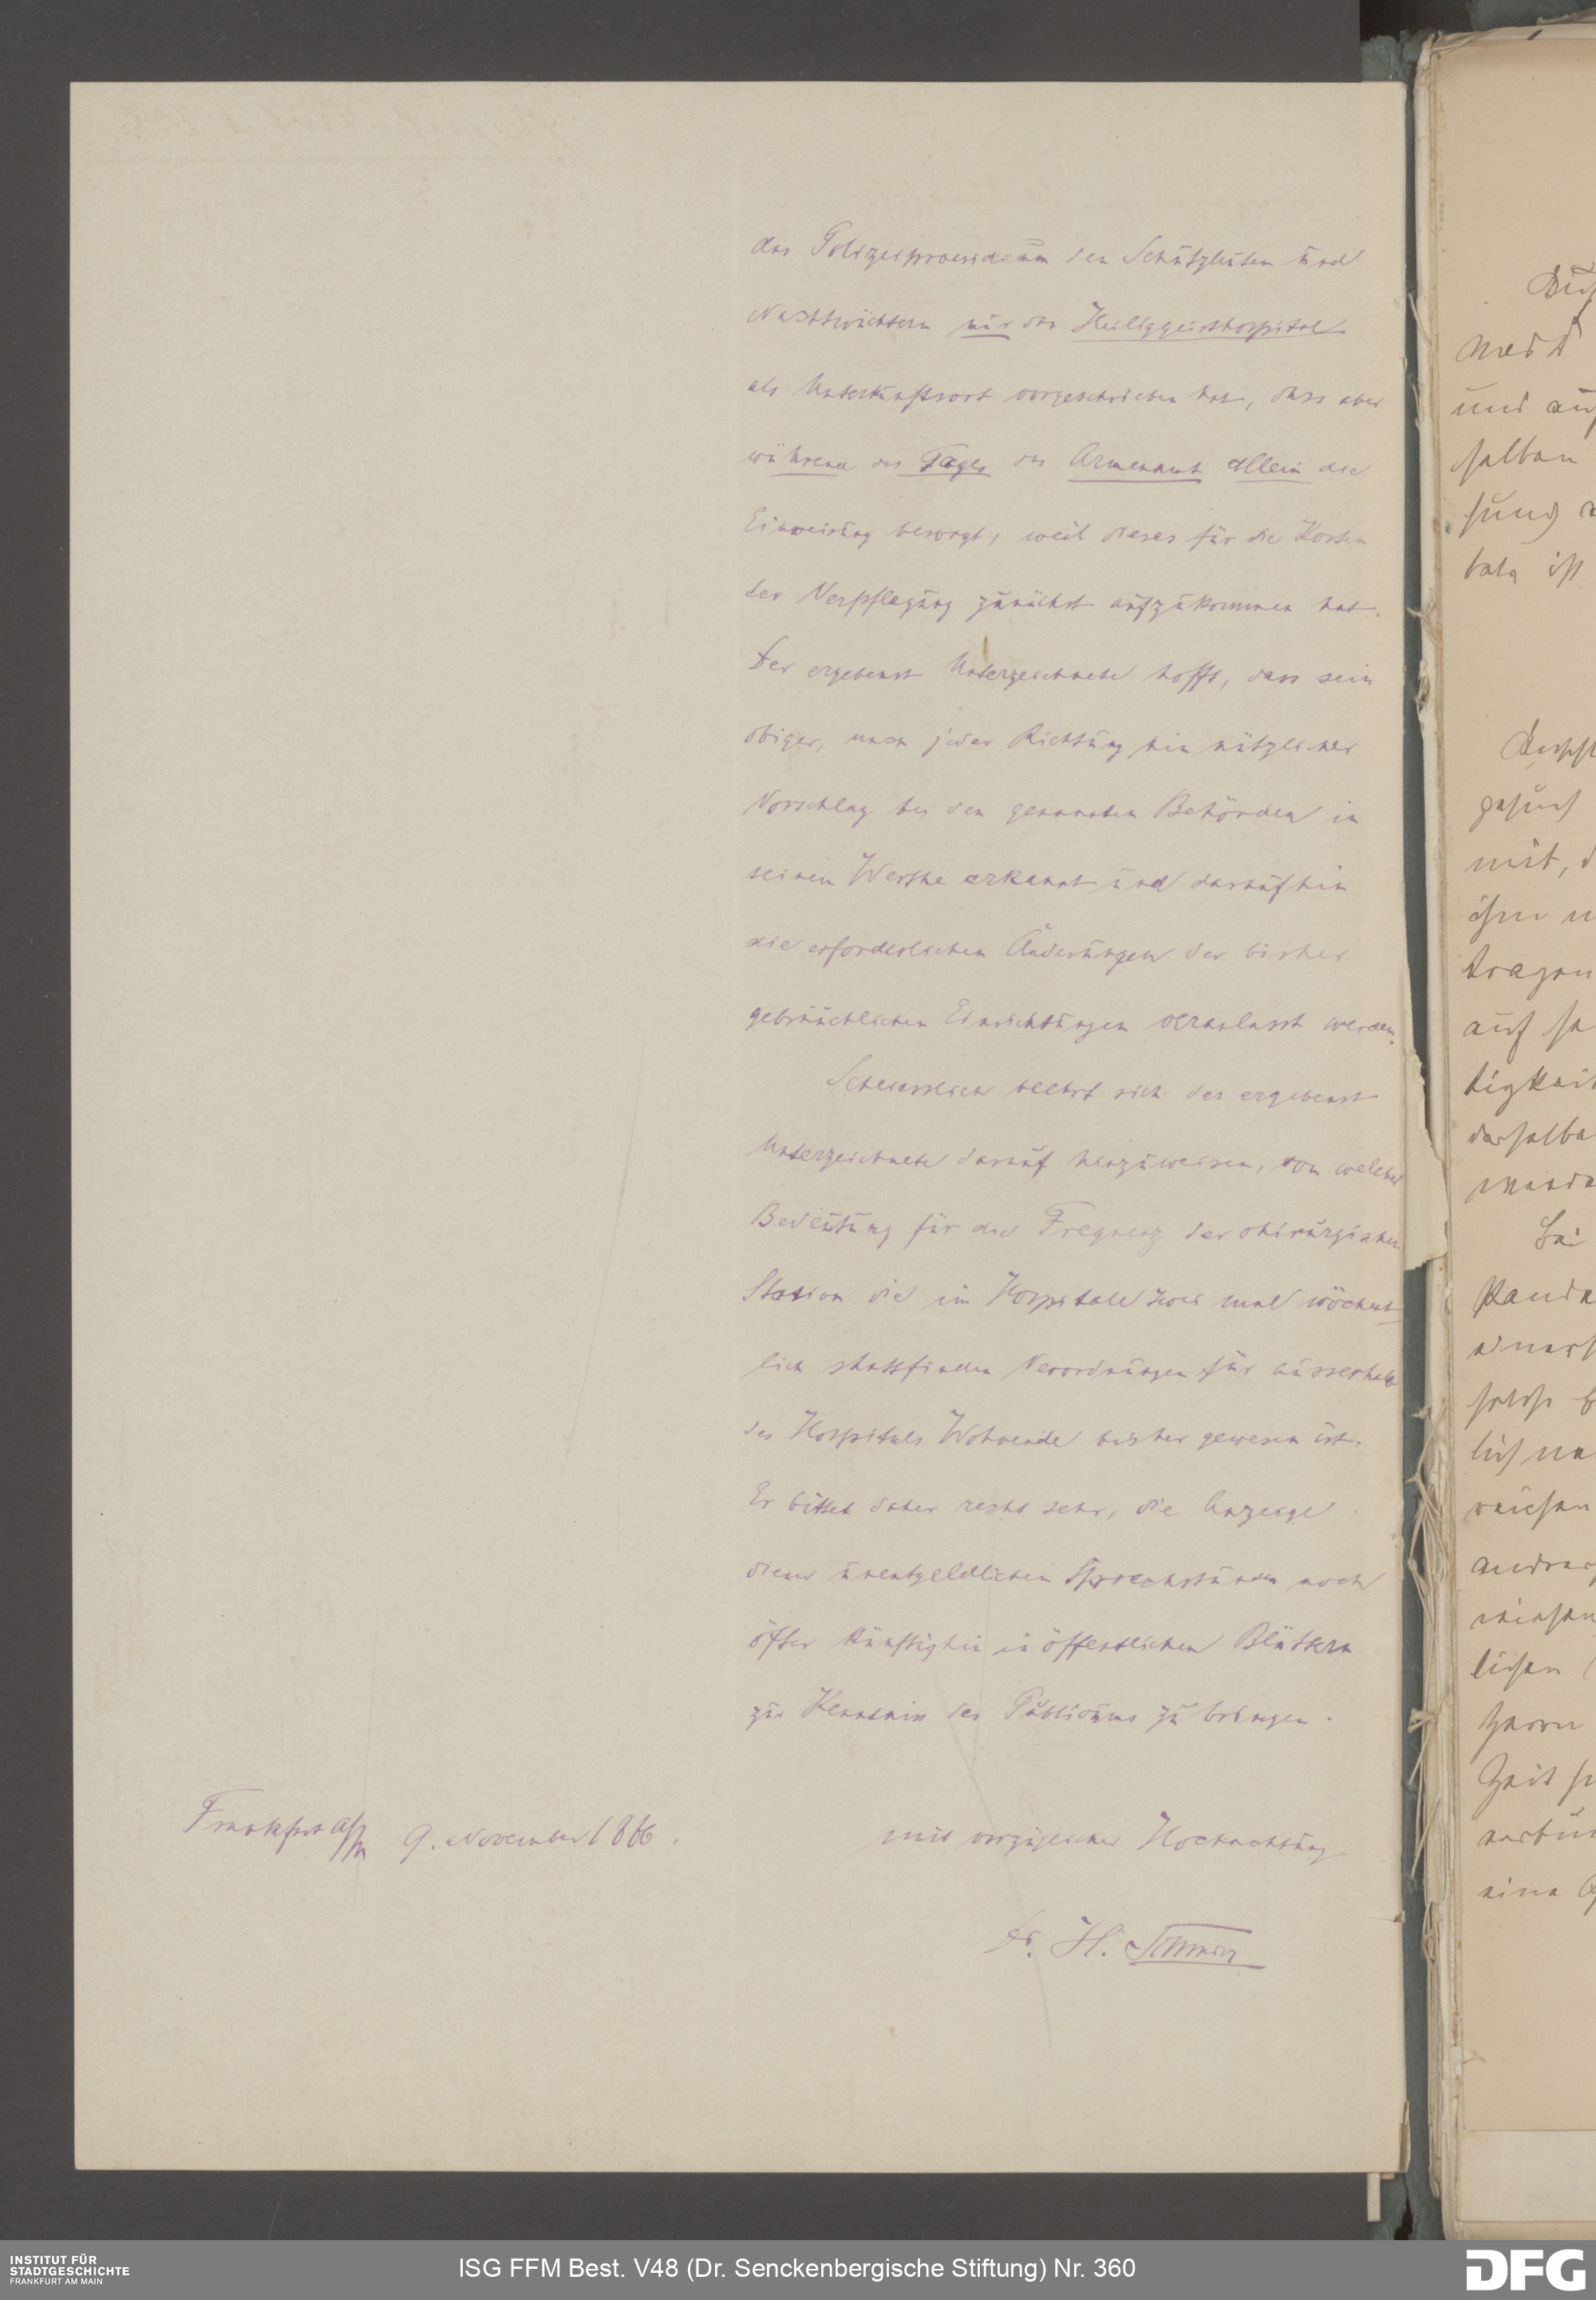 das Polizeipraesidium den Schützleuten und
Nachtwächtern nur das Heiliggeisthospital
als Unterkunftsort vorgeschrieben hat, dass aber
während des Tages das Armenamt allein die
Einweisung besorgt, weil dieses für die Kosten
der Verpflegung zunächst aufzukommen hat.
Der ergebenst Unterzeichnete hofft, dass sein
obiger, nach jeder Richtung hin nützlicher
Vorschlag bei den genannten Behörden in
seinem Werthe erkannt und daraufhin
die erforderlichen Änderungen der bisher
gebräuchlichen Einrichtungen veranlasst werden.
Schliesslich beehrt sich der ergebenst
Unterzeichnete darauf hinzuweisen, von welcher
Bedeutung für die Frequenz der chirurgischen
Station die im Hospitale zwei mal wöchent-
lich stattfinden Verordnungen für ausserhalb
des Hospitals Wohnende bisher gewesen ist.
Er bittet daher recht sehr, die Anzeige
dieser unentgeldlichen Sprechstunden noch
öfter künftighin in öffentlichen Blättern
zur Kenntniss des Publicums zu bringen.
Frankfurt a/M 9. November 1886.
mit vorzüglicher Hochachtung
Dr. H.
und auf
salben
bate ist
mit, d
tragen
auf
tigkeit
derselbe
Bei
lichen
Zeit
eine
INSTITUT FÜR
STADTGESCHICHTE
FRANKFURT AM MAIN
ISG FFM Best. V48 (Dr. Senckenbergische Stiftung) Nr. 360
DFG